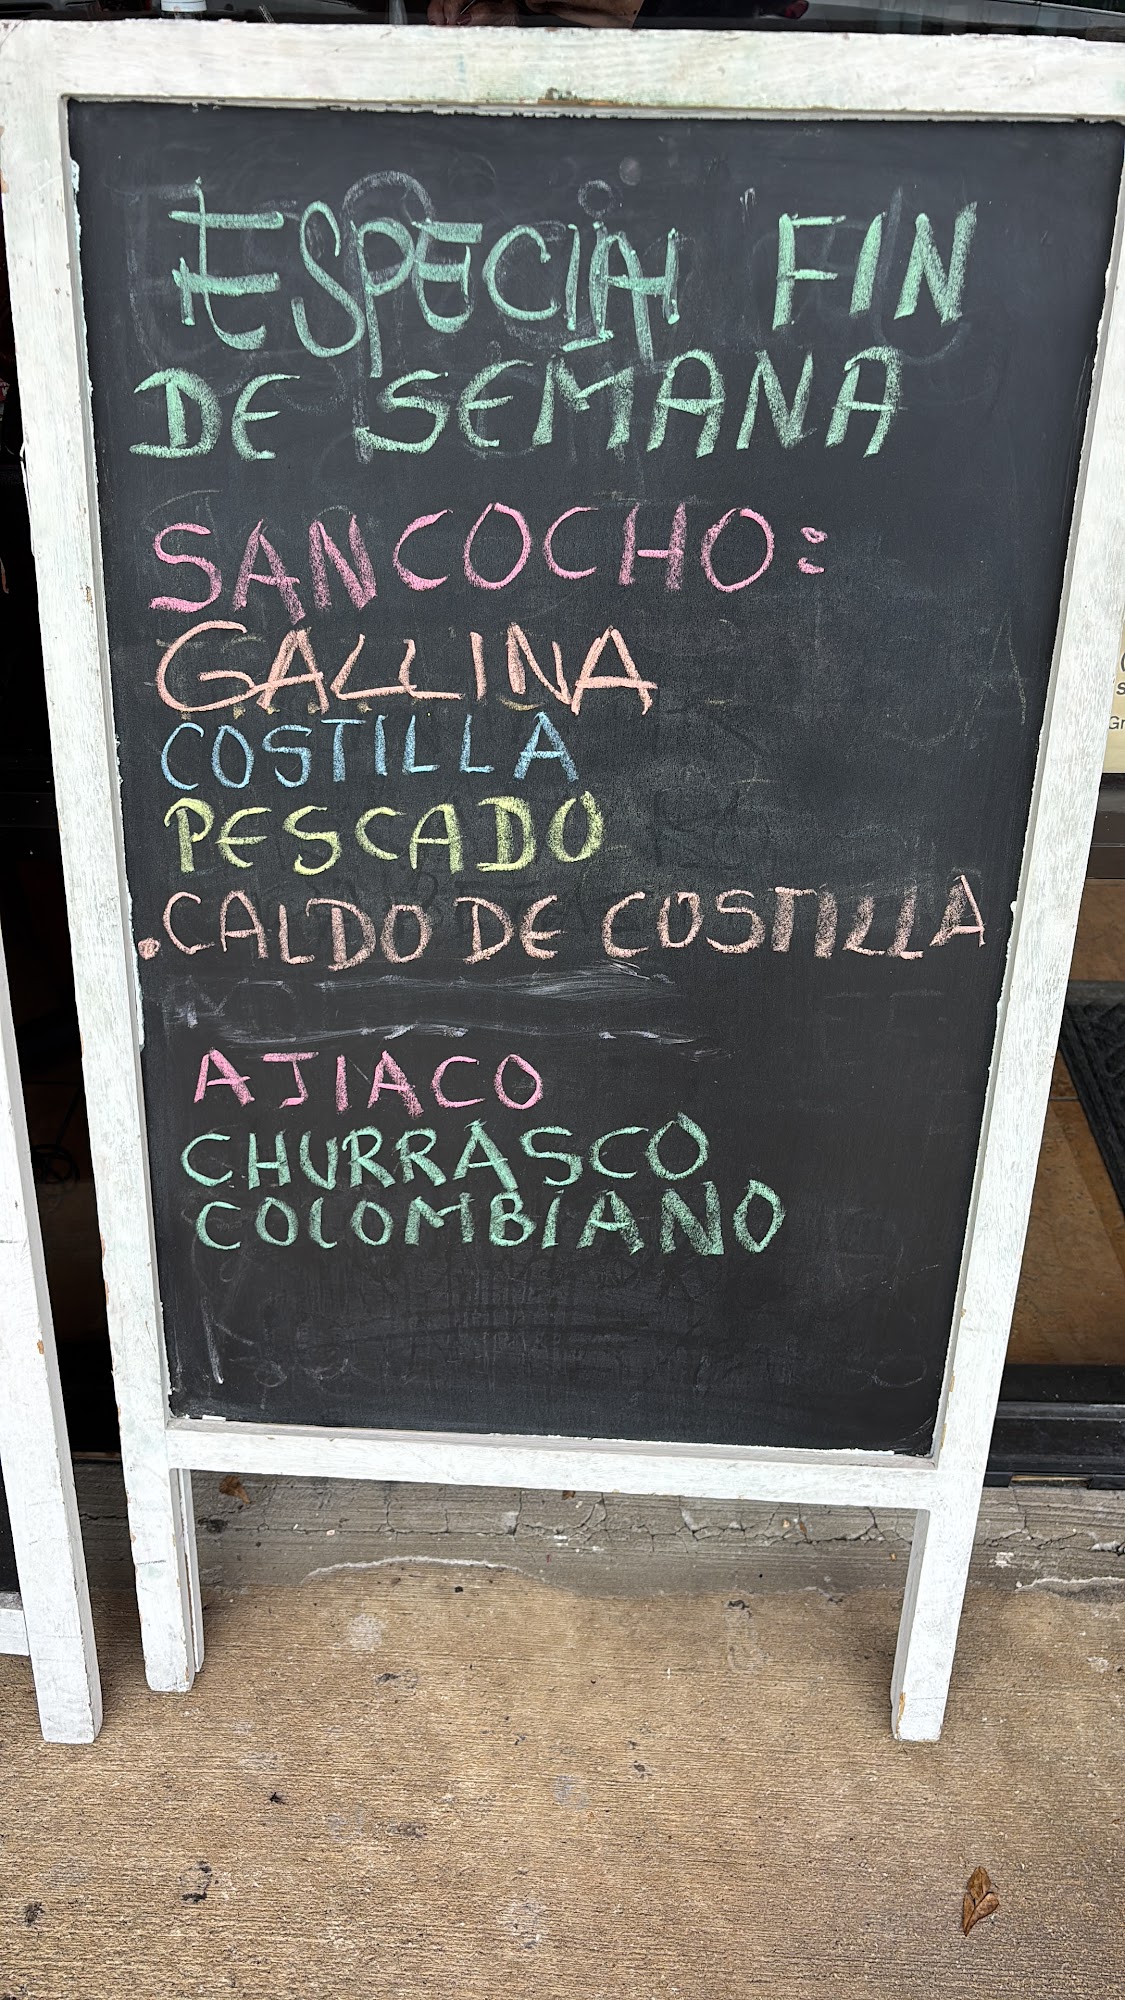 ESPECIAL FIN
DE SEMANA
SANCOCHO:
GALLINA
COSTILLA
PESCADO
.CALDO DE COSTILLA
AJIACO
CHURRASCO
COLOMBIANO